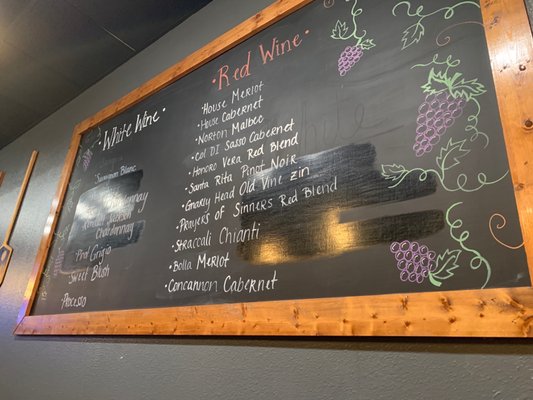 White Wine
Sauvignon Blanc
Chardonnay
Kendall Jackson
Chardonnay
Pino Grigio
Sweet Blush
Procesto
Red Wine
House Merlot
House Cabernet
Norton Malbec
Col Di Sasso Cabernet
Honoro Vera Red Blend
Santa Rita Pinot Noir
Gnarly Head Old Vine Zin
Prayers of Sinners Red Blend
Straccali Chianti
Bolla Merlot
Concannon Cabernet